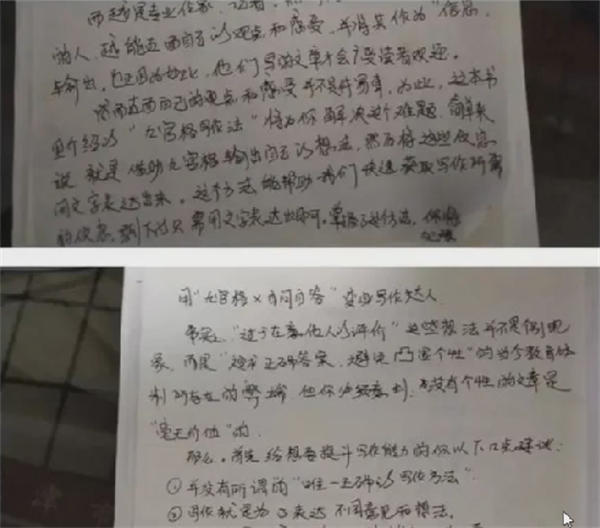 而越是专业作家、记者、
的人，越能直面自己的观点和感受，并将其作为“信息
与输出，也正因为如此，他们写的文章才会广受读者欢迎。
然而直面自己的观点和感受并不是件易事，为此，这本书
里介绍的“九宫格写作法”将为你解决这个难题，简单来
说，就是借助九宫格输出自己的想法，然后将这些信息
用文字表达出来，这个方法能帮助我们快速获取写作所需
的信息，剩下的只需用文字表达出来即可，掌握了这个方法，你将
用“九宫格×自问自答”变身写作达人
事实上“过于在意他人的评价”这些想法并不是个别现
象，而是“追求正确答案，避免凸显个性”的当今教育体
制所存在的弊端，但你必须意识到，没有个性的文章是
“毫无价值”的。
那么，首先给想要提升写作能力的你以下几点建议：
①并没有所谓的“唯一正确的写作方法”
②写作就是为了表达不同意见和想法。